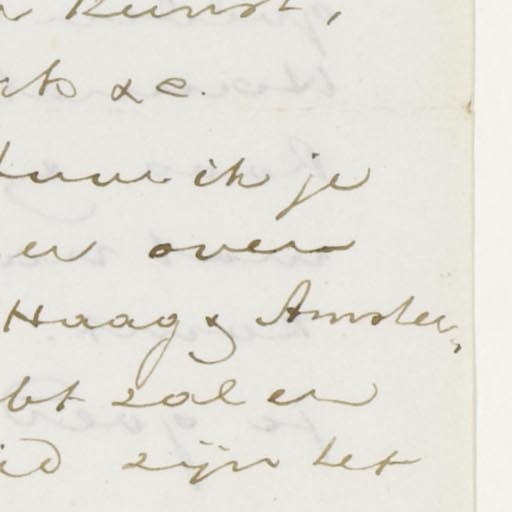 Kunst,
&c.
stuur ik je
er over
Haag & Amster„
bt zal er
id zijn het